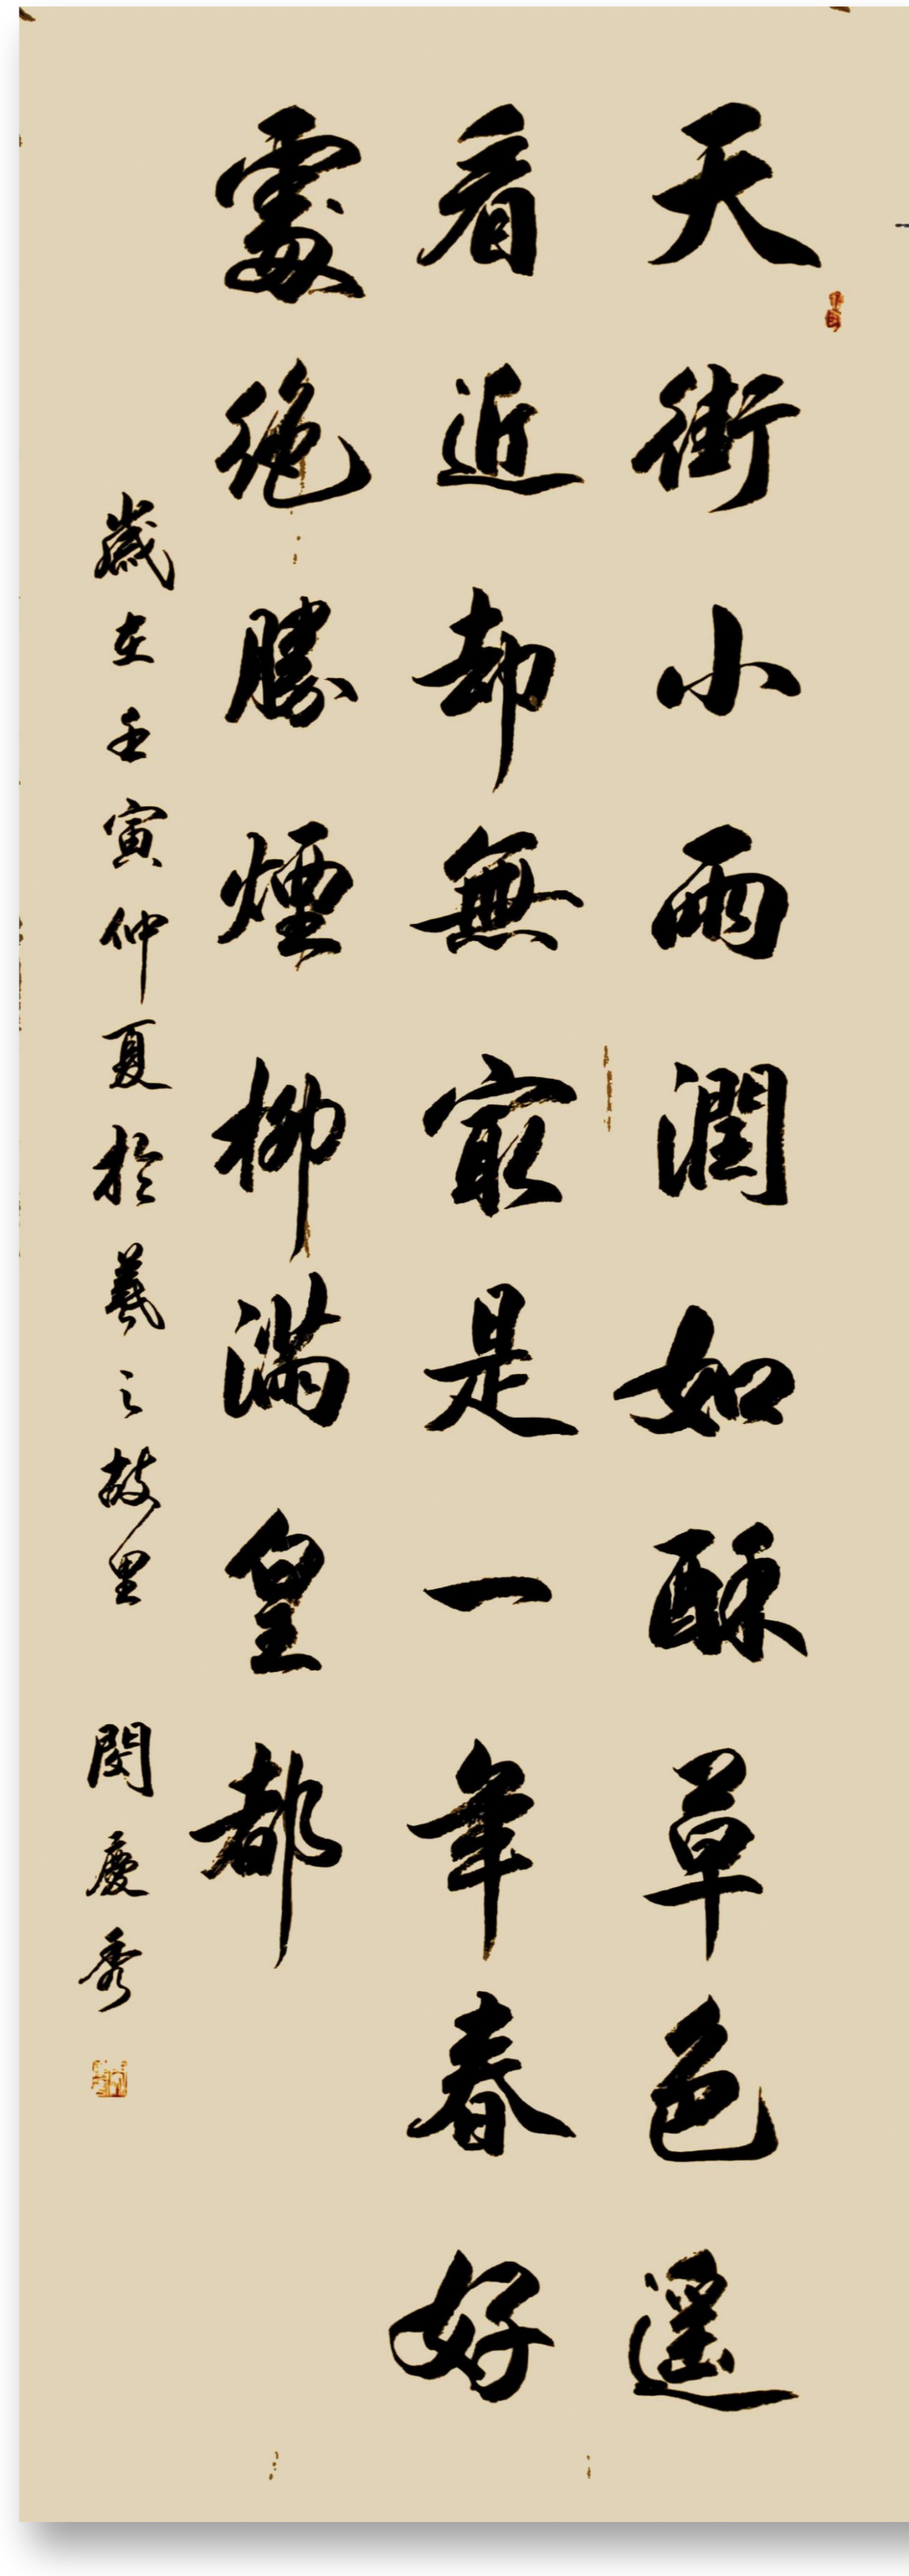 天街小雨潤如酥草色遥
看近却無最是一年春好
處絶勝煙柳滿皇都
歲在壬寅仲夏於羲之故里 閔慶秀